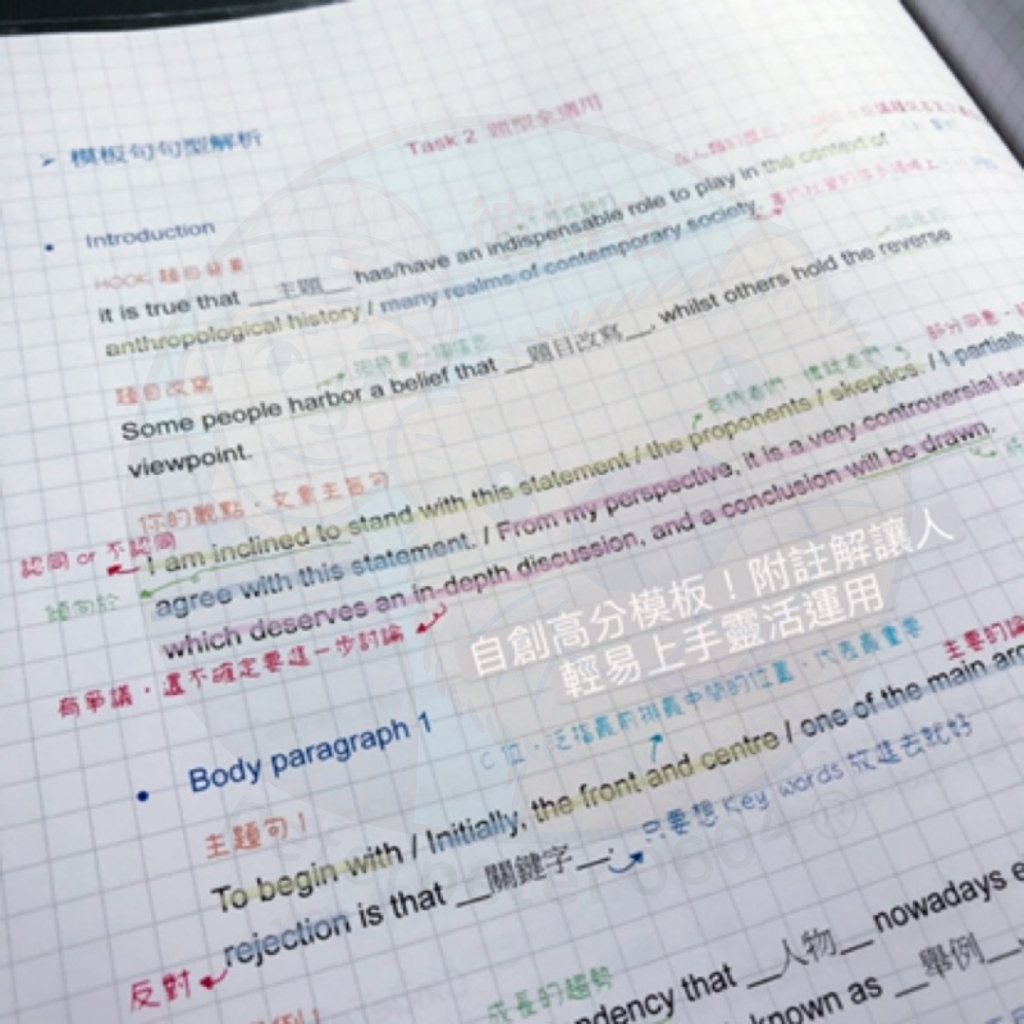 ➤ 模板句句型解析
Task 2 題型全適用
• Introduction
HOOK 題目背景
it is true that __主題__ has/have an indispensable role to play in the context of
anthropological history / many realms of contemporary society.
題目改寫
Some people harbor a belief that __題目改寫__, whilst others hold the reverse
viewpoint.
你的觀點、文章主旨句
支持者們
部分同意
認同 or 不認同
I am inclined to stand with this statement / the proponents / skeptics. / I partially
傾向於
agree with this statement. / From my perspective, it is a very controversial
which deserves an in-depth discussion, and a conclusion will be drawn.
有爭議，還不確定要進一步討論
自創高分模板！附註解讓人
輕易上手靈活運用
• Body paragraph 1
C 位，泛指最前排最中間的位置，代表最重要
主要的論
主題句 1
To begin with / Initially, the front and centre / one of the main
只要想 Key words 放進去就好
rejection is that __關鍵字__.
反對
成長的趨勢
that __人物__ nowadays
known as __舉例__